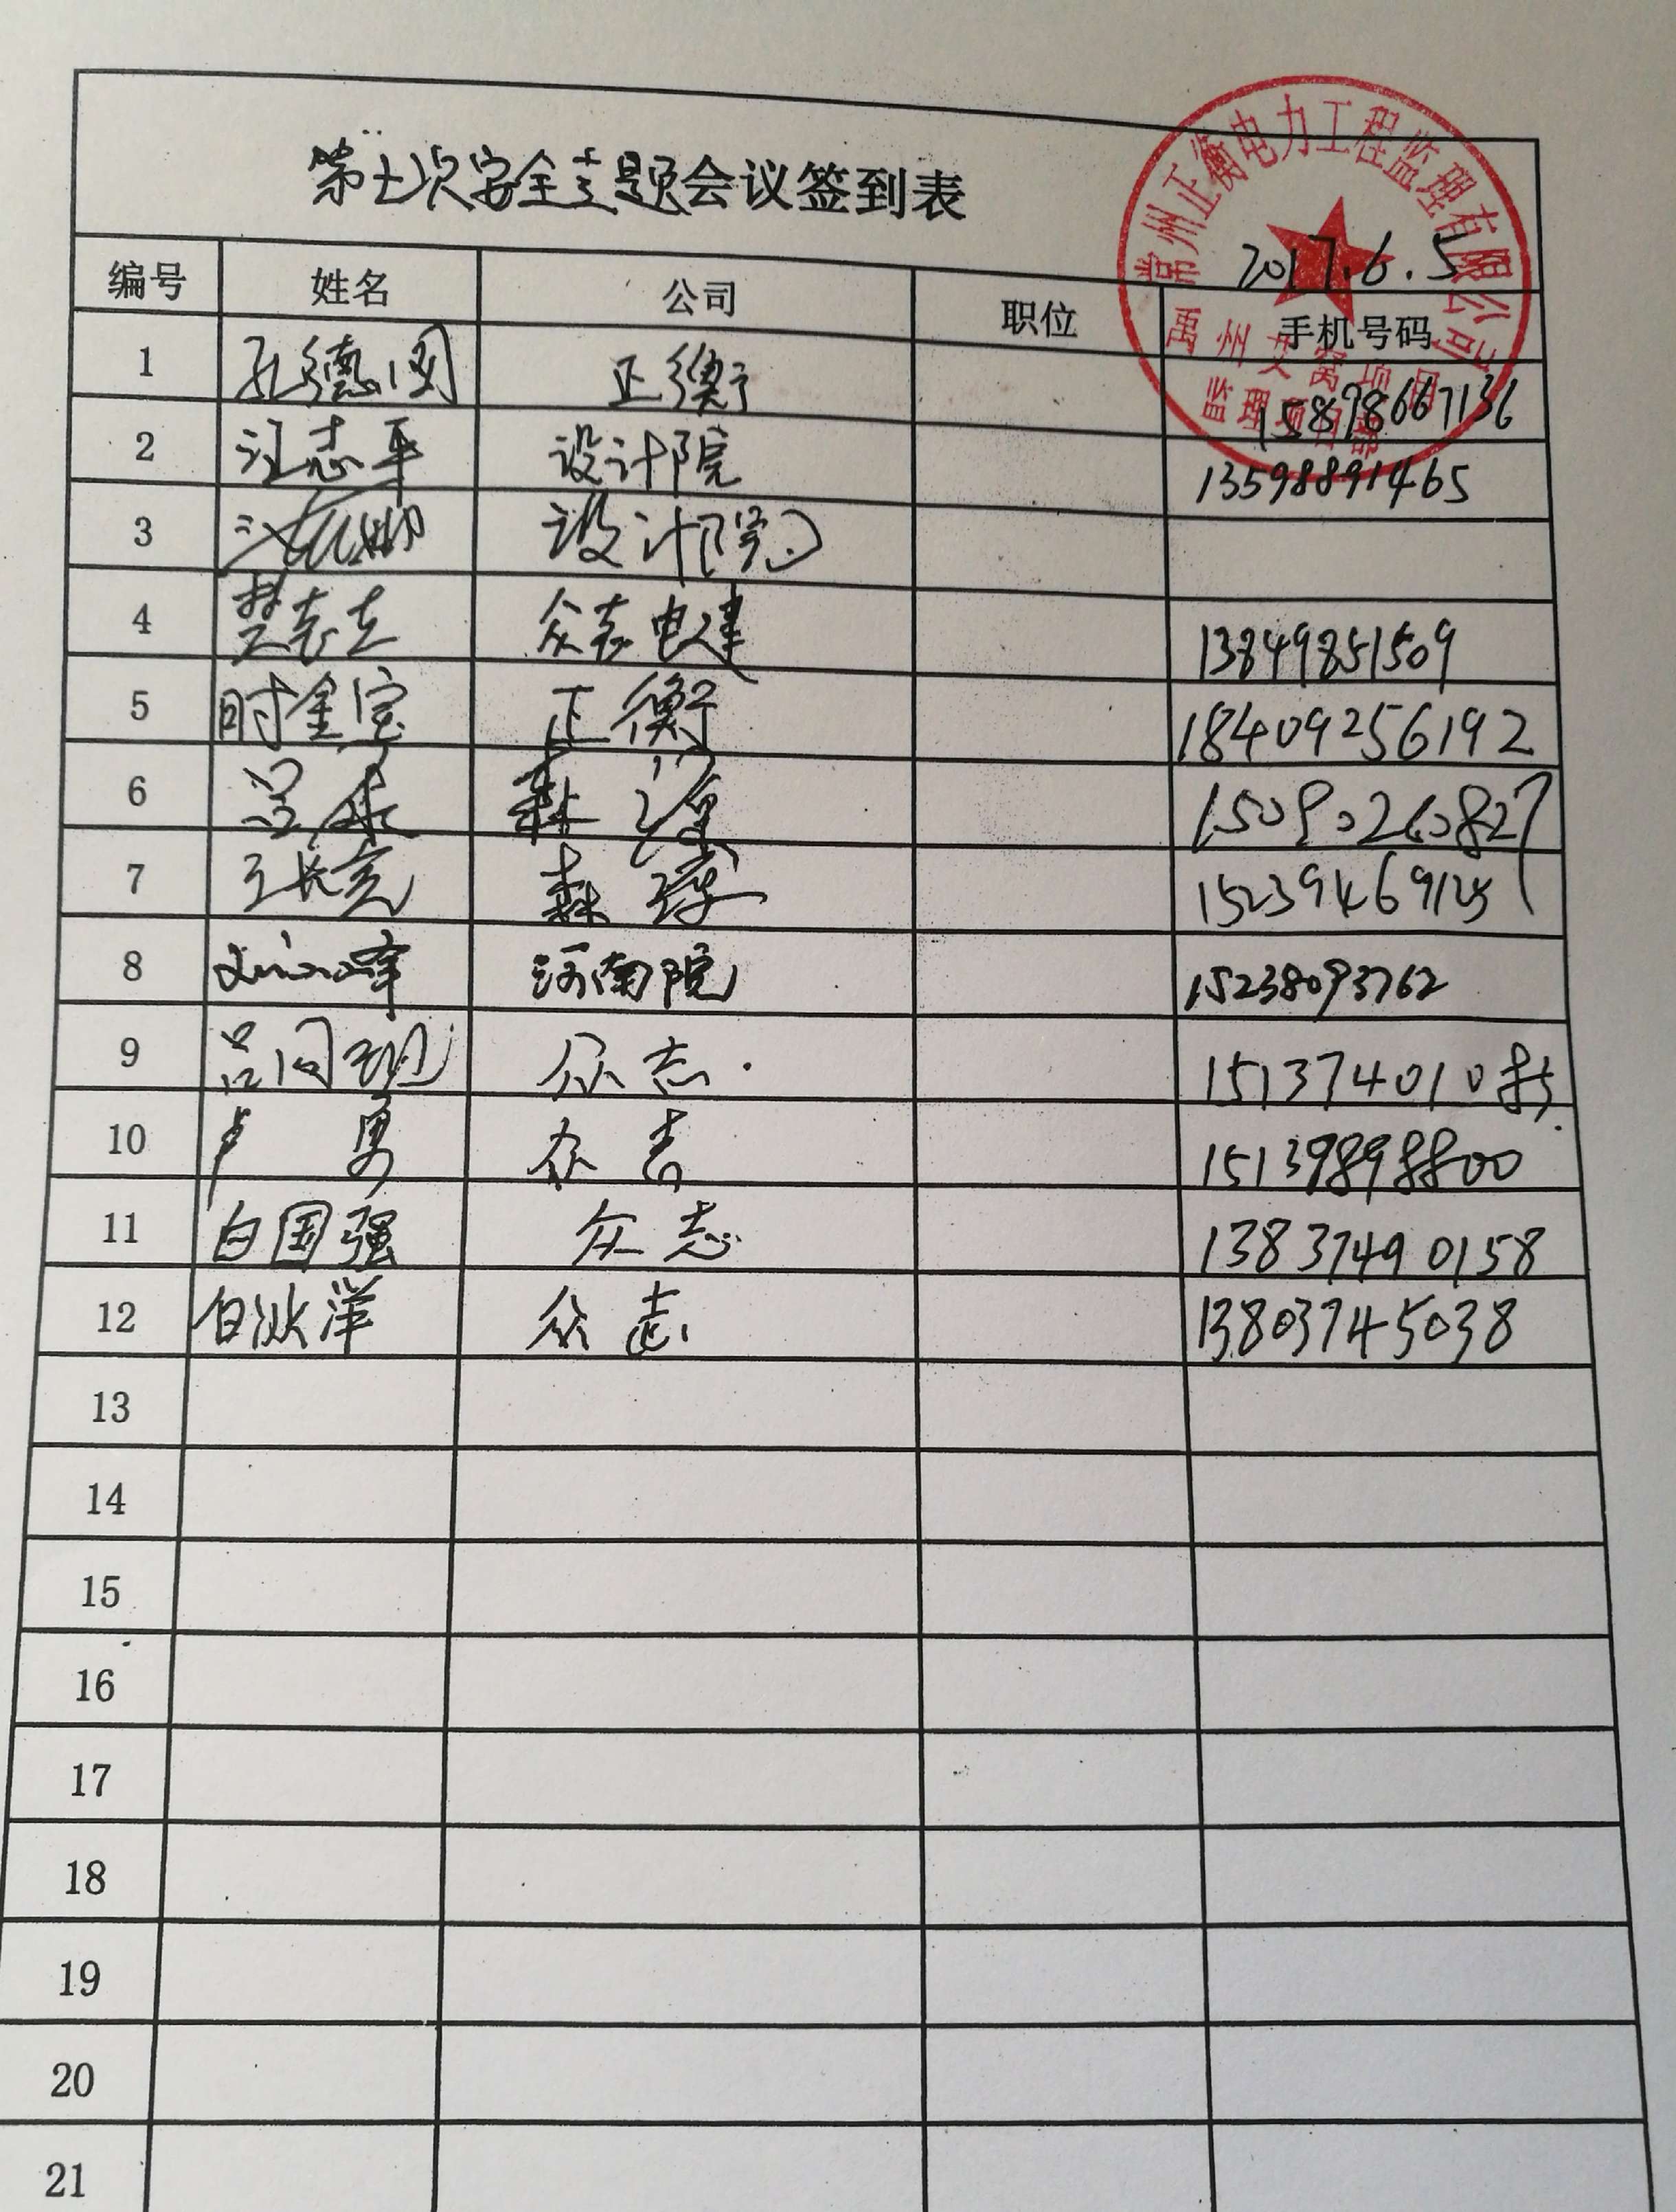 第七次安全主题会议签到表
常州正衡电力工程监理有限公司
2017.6.5
编号 姓名 公司 职位 手机号码
禹州
监理项目部
1 孔德国 正衡 15898667136
2 汪志平 设计院 13598891465
3 设计院
4 楚志立 众志电建 13849851509
5 时金宝 正衡 18409256192
6 吕 森源 15090260827
7 王长亮 森源 15239469125
8 峰 河南院 15238093762
9 吕同 众志 15137401085
10 卢勇 众志 15139898800
11 白国强 众志 13837490158
12 白冰洋 众志 13803745038
13
14
15
16
17
18
19
20
21